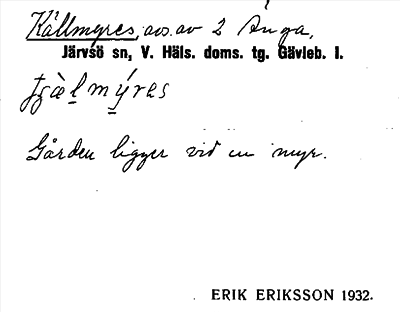 Källmyres, avs. av 2 Änga,
Järvsö sn, V. Häls. doms. tg. Gävleb. l.
tjälmýres
Gården ligger vid en myr.
ERIK ERIKSSON 1932.